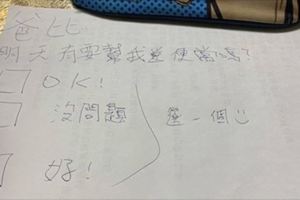 爸比
明天有要幫我送便當嗎?
□ OK!
□ 沒問題
□ 好!
選一個